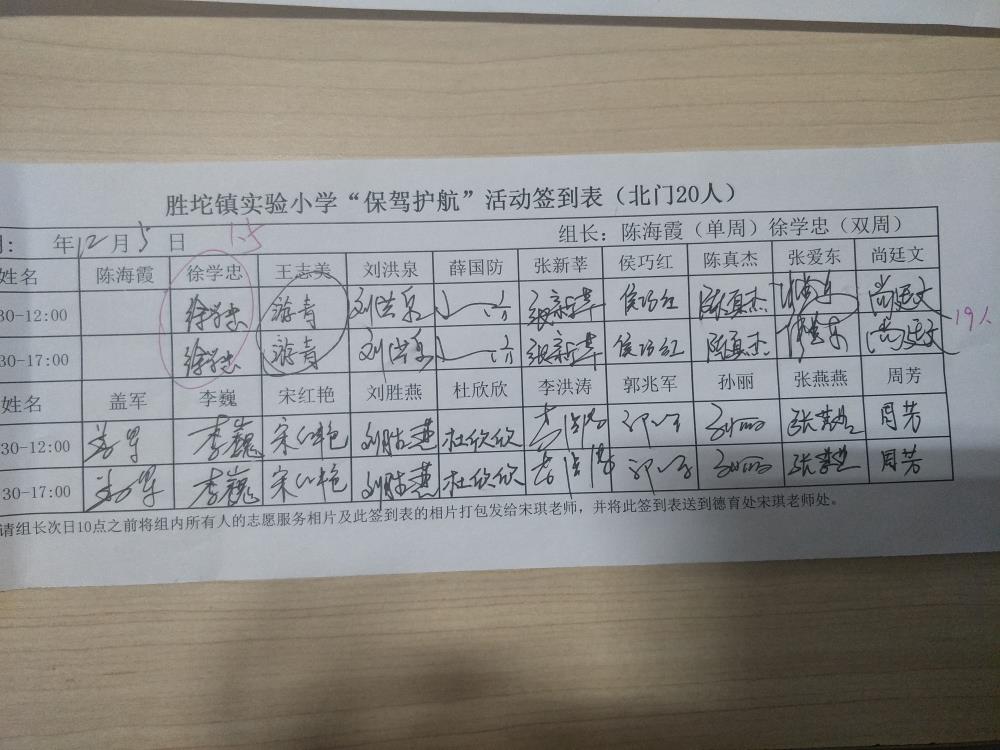 胜坨镇实验小学“保驾护航”活动签到表（北门20人）
期： 年12月5日 1.5 组长：陈海霞（单周）徐学忠（双周）
姓名 陈海霞 徐学忠 王志美 刘洪泉 薛国防 张新莘 侯巧红 陈真杰 张爱东 尚廷文
30-12:00 徐学忠 游青 刘洪泉 张新莘 侯巧红 陈真杰 尚廷文
30-17:00 徐学忠 游青 刘洪泉 张新莘 侯巧红 陈真杰 尚廷文
19人
姓名 盖军 李巍 宋红艳 刘胜燕 杜欣欣 李洪涛 郭兆军 孙丽 张燕燕 周芳
30-12:00 盖军 李巍 宋红艳 刘胜燕 杜欣欣 李洪涛 孙丽 张燕燕 周芳
30-17:00 盖军 李巍 宋红艳 刘胜燕 杜欣欣 李洪涛 孙丽 张燕燕 周芳
请组长次日10点之前将组内所有人的志愿服务相片及此签到表的相片打包发给宋琪老师，并将此签到表送到德育处宋琪老师处。